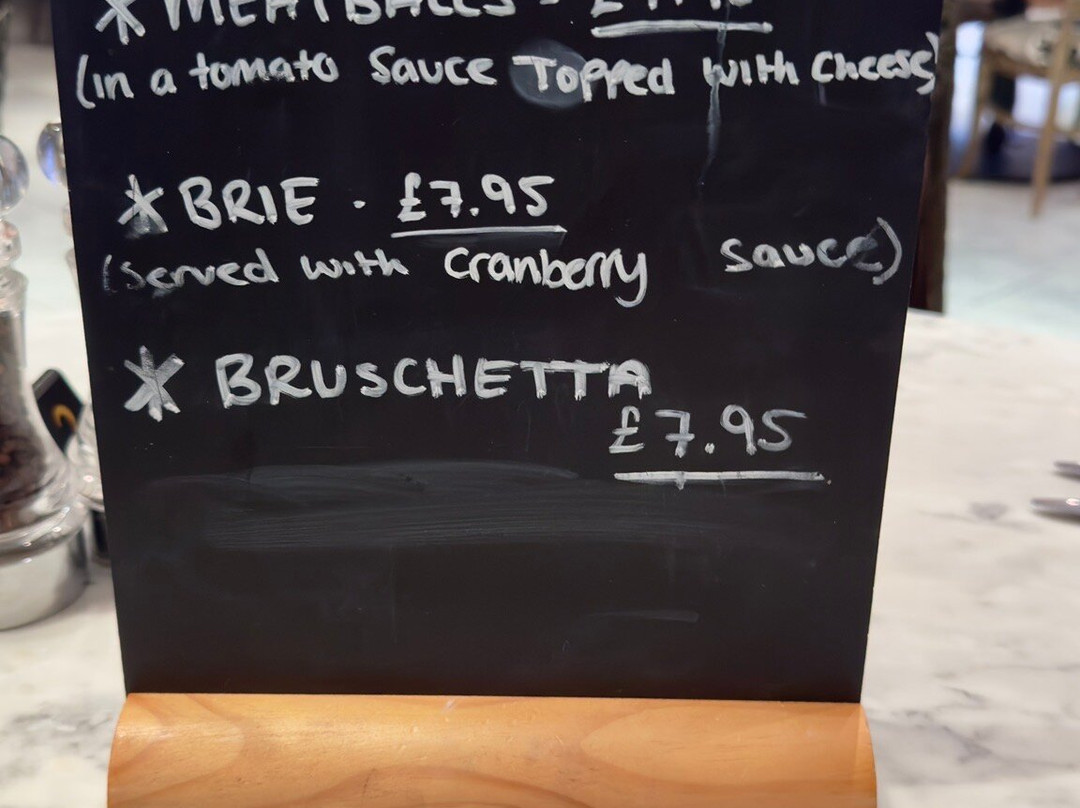 * MEATBALLS -
(in a tomato Sauce Topped with Cheese)
* BRIE . £7.95
(Served with Cranberry Sauce)
* BRUSCHETTA
£7.95